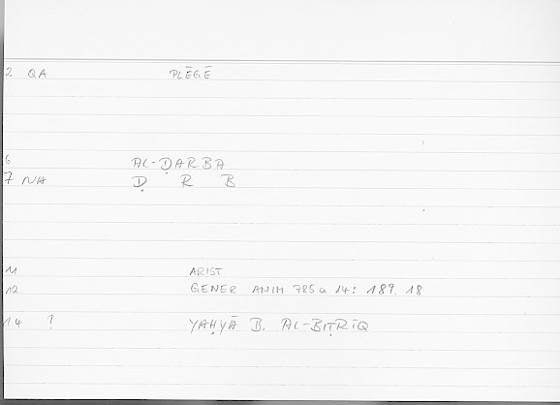 2 QA PLĒGĒ
6 AL-ḌARBA
7 NA Ḍ R B
11 ARIST.
12 GENER ANIM 785a 14: 189, 18
14 ? YAḤYĀ B. AL-BIṬRĪQ